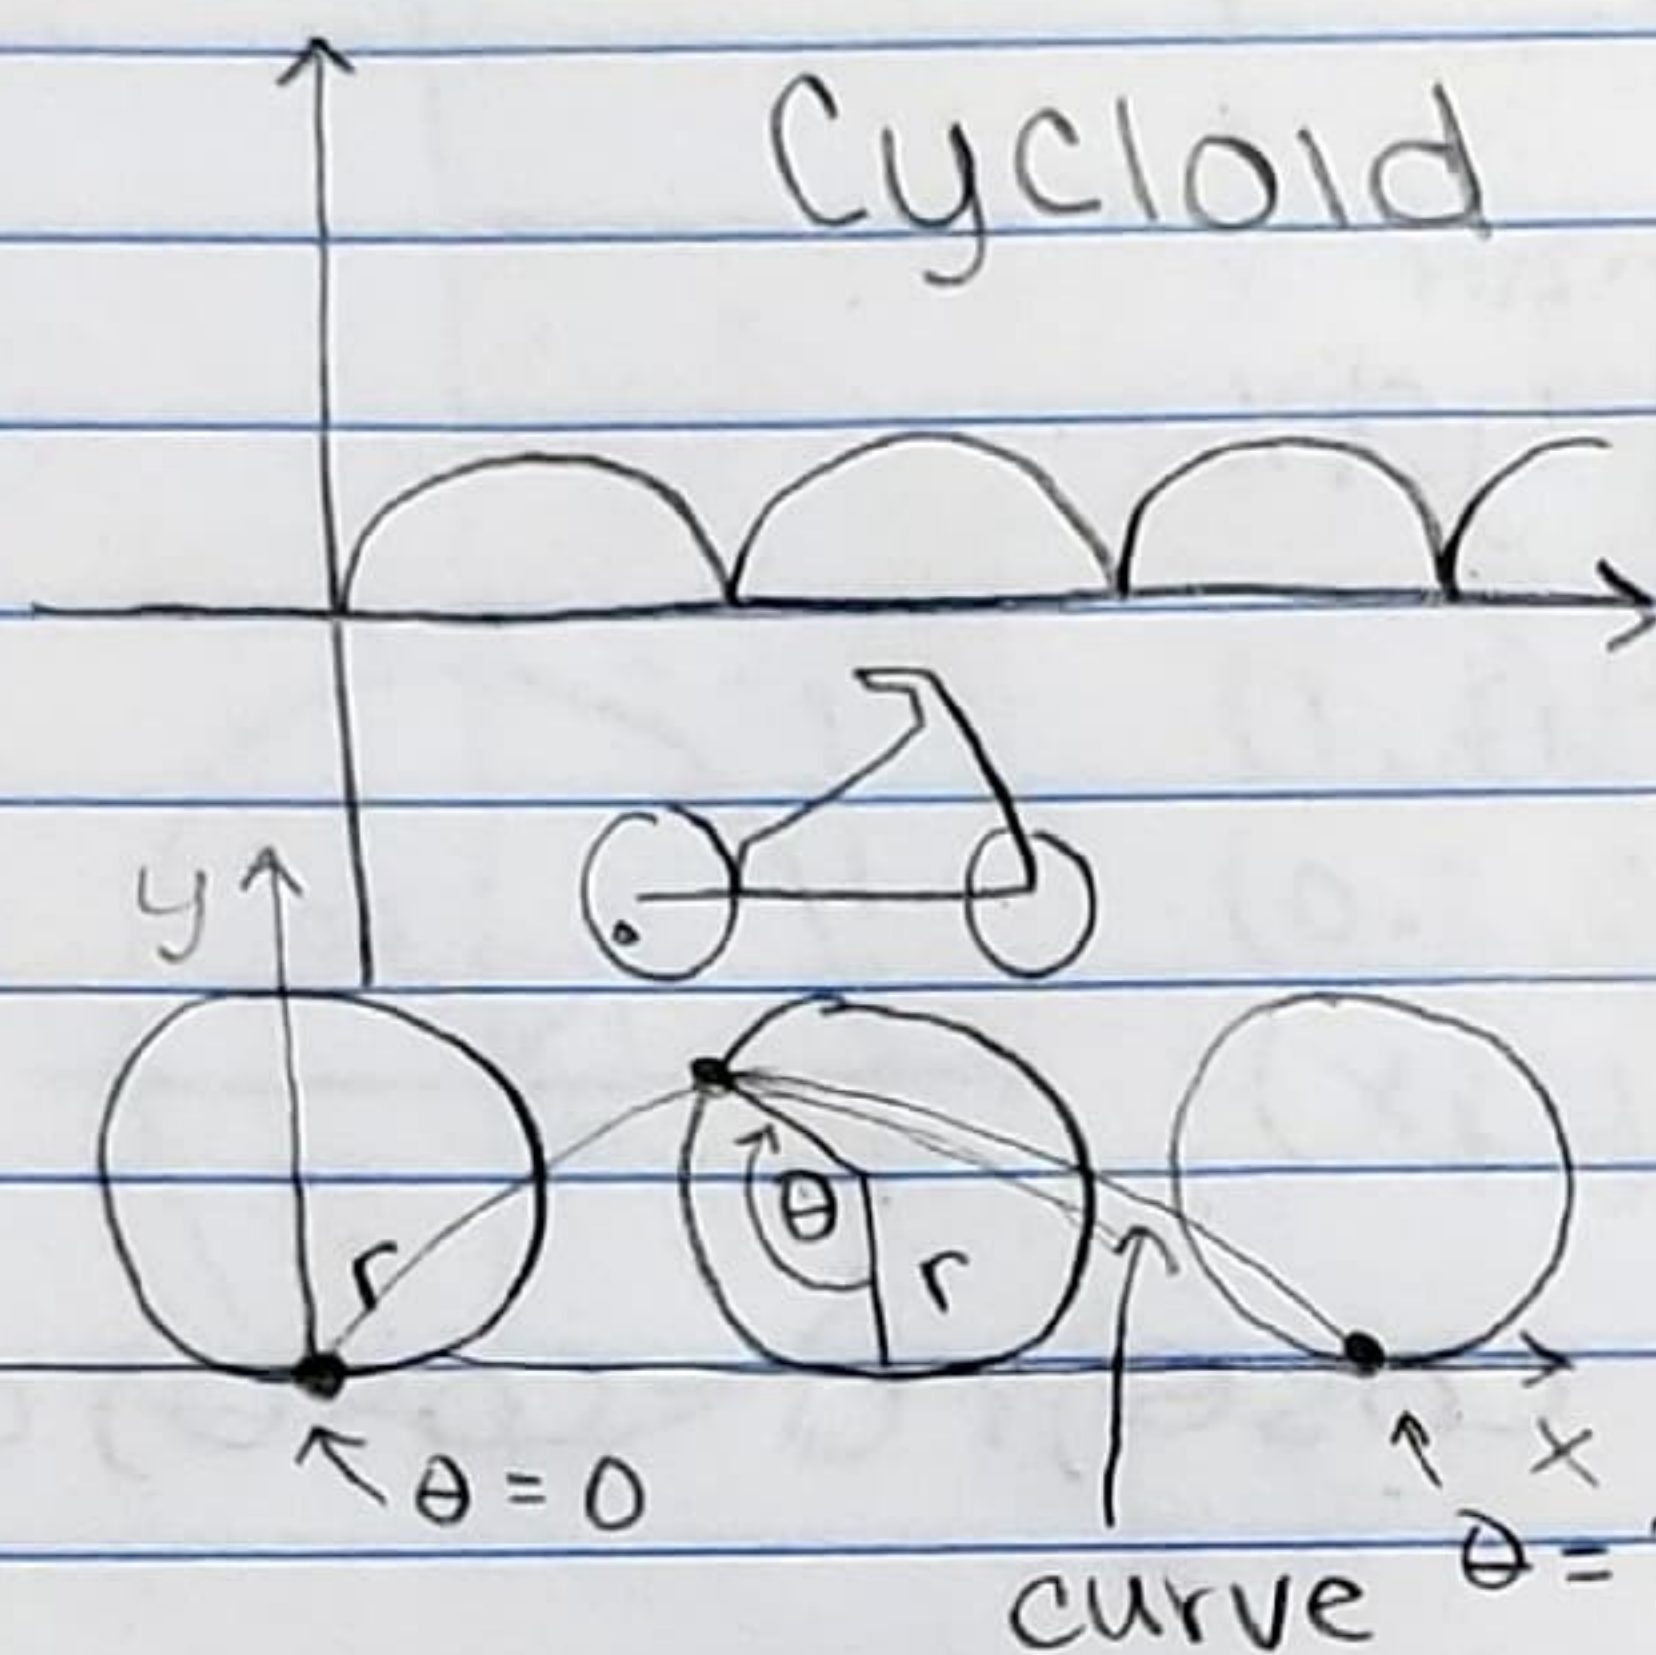 Cycloid
y
θ
r
r
θ = 0
x
θ =
curve